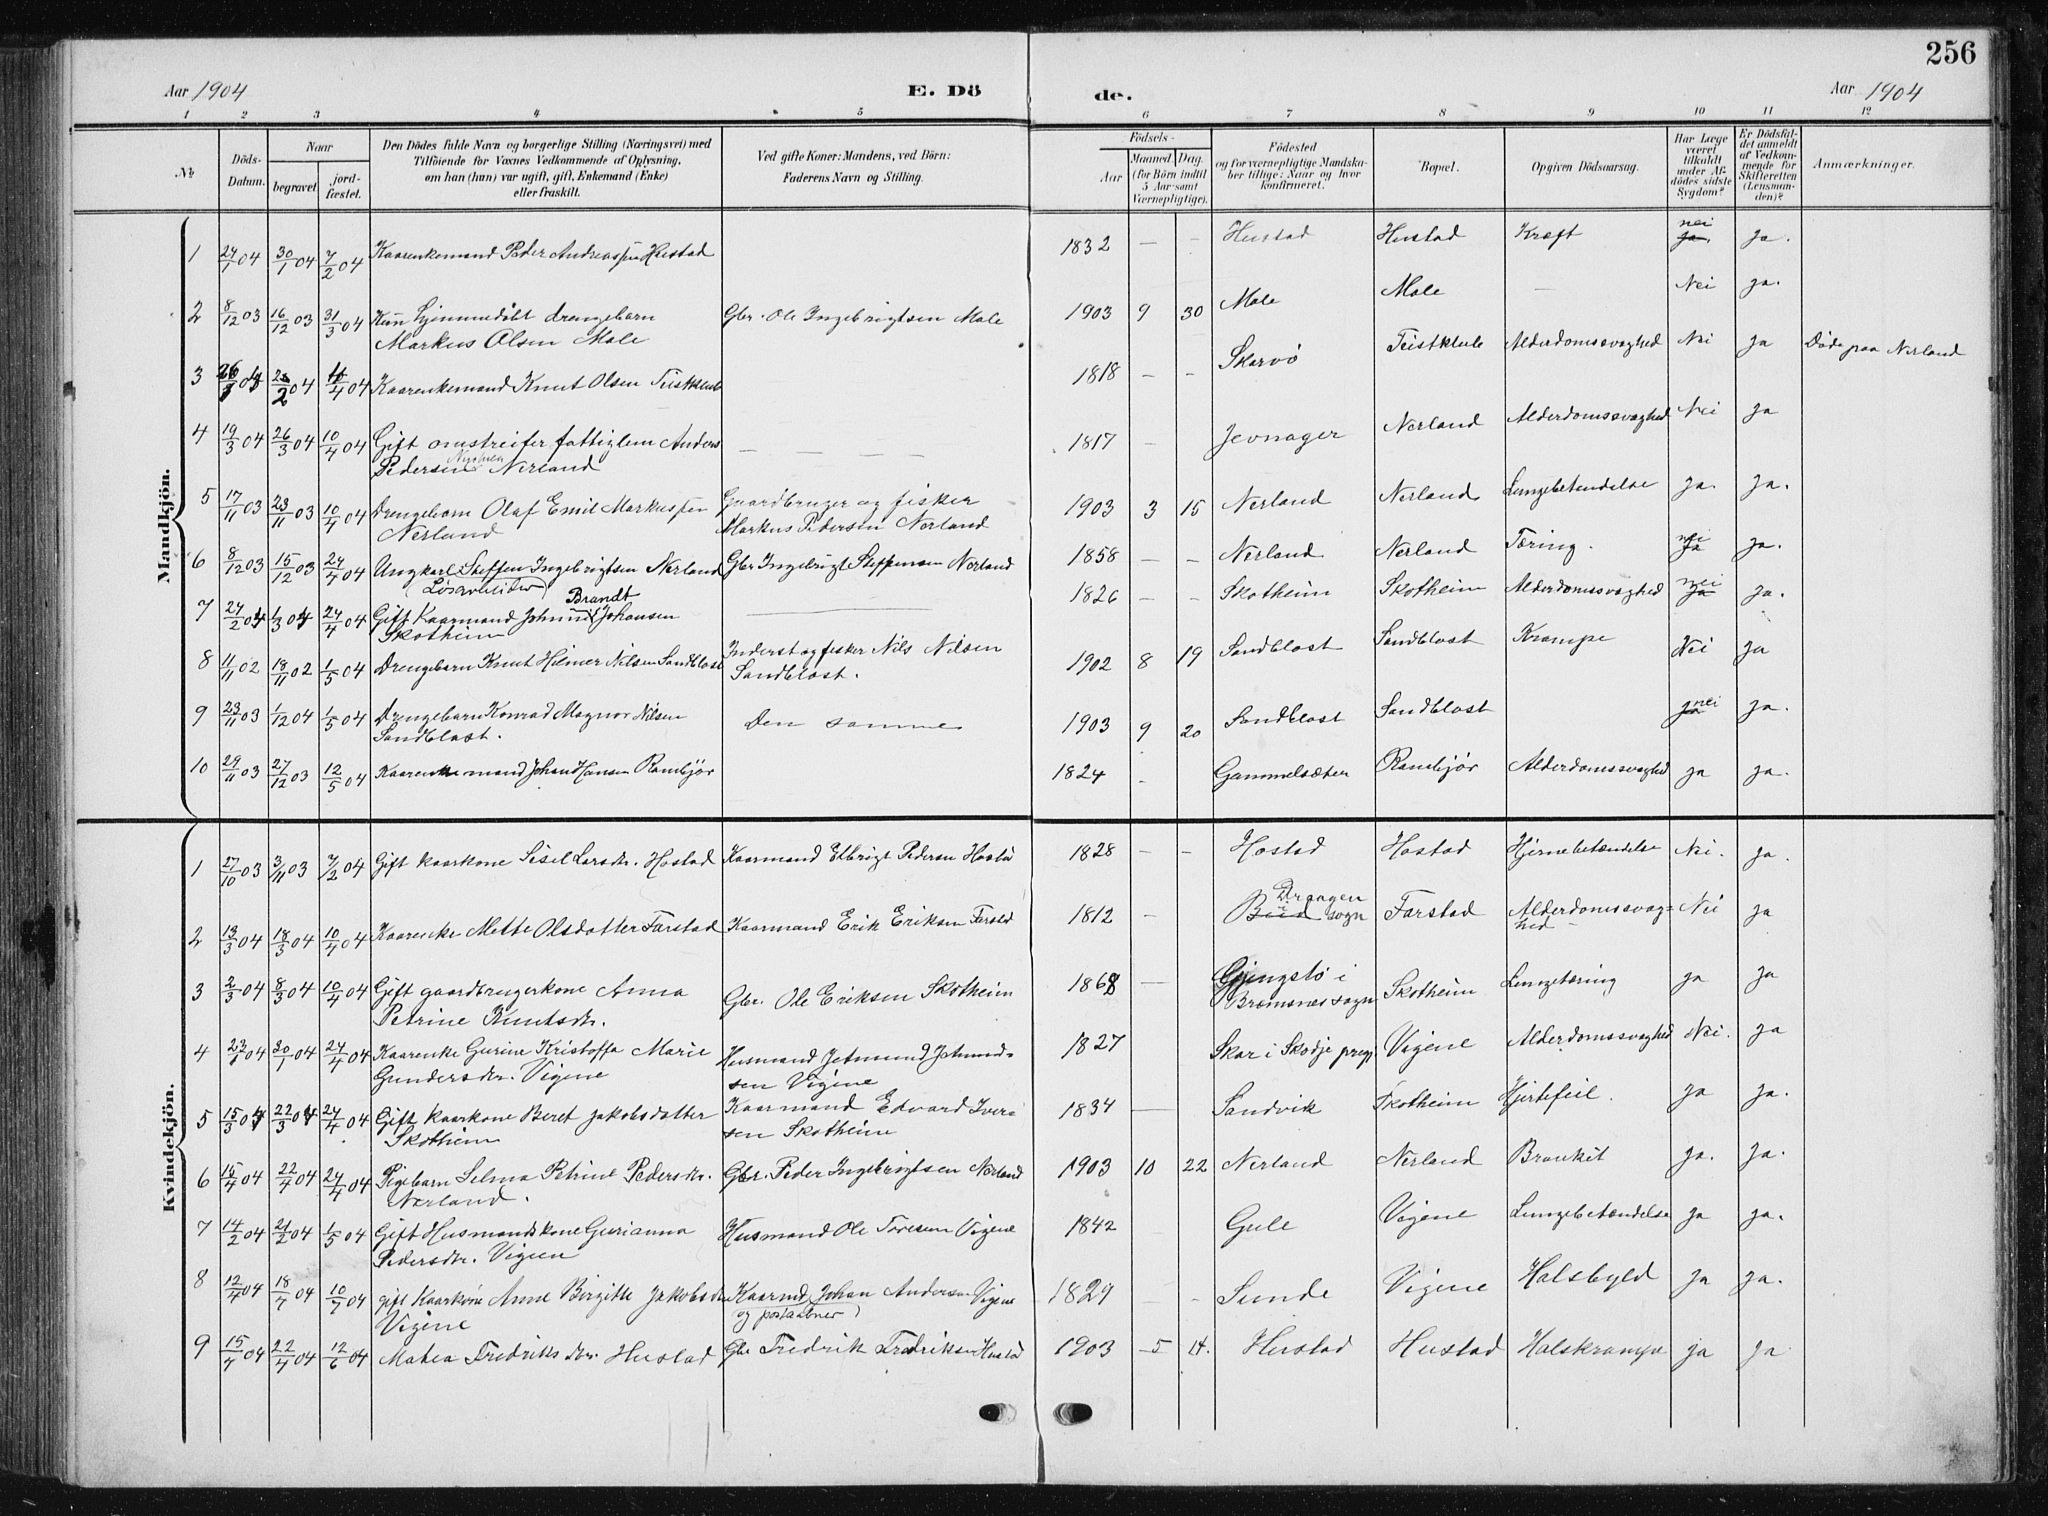 256
Aar 1904
E. Dö
de.
Aar 1904
1 2 3 4 5 6 7 8 9 10 11 12
№
Döds-Datum.
Naar
begravet
jord-fæstet.
Den Dödes fulde Navn og borgerlige Stilling (Næringsvei) med
Tilföiende for Voxnes Vedkommende af Oplysning,
om han (hun) var ugift, gift, Enkemand (Enke)
eller fraskilt.
Ved gifte Koner: Mandens, ved Börn:
Faderens Navn og Stilling.
Födsels-
Aar
Maaned. Dag.
(for Börn indtil
5 Aar samt
Værnepligtige).
Födested
og for værnepligtige Mandska-
ber tillige: Naar og hvor
konfirmeret.
Bopæl.
Opgiven Dödsaarsag.
Har Læge
været
tilkaldt
under Af-
dødes sidste
Sygdom?
Er Dödsfal-
det anmeldt
af Vedkom-
mende for
Skifteretten
(Lensman-
den)?
Anmærkninger.
Mandkjön.
1 24/1 04 30/1 04 7/2 04 Kaarenkemand Peder Andreassen Hustad 1832 — — Hustad Hustad Kræft nei ja. ja.
2 8/12 03 16/12 03 31/3 04 Kun hjemmedøbt drengebarn Gbr. Ole Ingebrigtsen Male 1903 9 30 Male Male — Nei ja.
Markus Olsen Male
3 04 04 /4 04 Kaarenkemand Knut Olsen 1818 — — Skarvö Teistklub Alderdomssvaghed Nei ja Döde paa Nerland
4 19/3 04 26/3 04 10/4 04 Gift omstreifer fattiglem Anders — — — — 1817 — Jevnager Nerland Alderdomssvaghed Nei ja
Pedersen Nerland
5 17/11 03 23/11 03 10/4 04 Drengebarn Olaf Emil Markussen Gaardbruger og fisker 1903 3 15 Nerland Nerland Lungebetendelse ja. ja.
Nerland Markus Pedersen Nerland
6 8/12 03 15/12 03 24/4 04 Ungkarl Steffen Ingebrigtsen Nerland Gbr Ingebrigt Steffensen Nerland 1858 — — Nerland Nerland Tæring. nei ja ja.
(Lösarbeider)
7 24/2 04 1/3 04 24/4 04 Gift Kaarmand Brandt Johansen 1826 — — Skotheim Skotheim Alderdomssvaghed nei ja ja.
Skotheim
8 11/11 02 18/11 02 1/5 04 Drengebarn Knut Hilmer Nilsen Sandblost Inderst og fisker Nils Nilsen 1902 8 19 Sandblost Sandblost Krampe Nei ja
Sandblost.
9 23/11 03 1/12 04 1/5 04 Drengebarn Konrad Magnor Nilsen Den samme 1903 9 20 Sandblost Sandblost ja nei ja.
Sandblost.
10 29/11 03 27/12 03 12/5 04 Kaarenkemand Johan Hansen Rambjör 1824 - Gammelsæter Rambjör Alderdomssvaghed ja ja.
Kvindekjön.
1 27/10 03 3/11 03 7/2 04 Gift kaarkone Sisel Larsdtr. Hostad Kaarmand Elbrigt Pedersen 1828 — — Hostad Hostad Hjernebetændelse Nei. ja.
2 13/3 04 18/3 04 10/4 04 Kaarenke Mette Olsdatter Farstad Kaarmand Erik Eriksen Farstad 1812 — Drangen Farstad Alderdomssvag= Nei ja
Bud sogn hed
3 2/3 04 8/3 04 10/4 04 Gift gaardbrugerkone Anna Gbr. Ole Eriksen Skotheim 1868 — Gjengstö i Skotheim Lungetæring ja ja
Petrine Knutsdtr. Bremsnes sogn
4 23/1 04 30/1 04 24/4 04 Kaarenke Gurine Kristoffa Marie Husmand Jetmund Johnnd- 1827 Skar i Skodje pregj Vigene Alderdomssvaghed Nei. ja
Gundersdtr. Vigene sen Vigene
5 15/3 04 22/3 04 24/4 04 Gift kaarkone Beret Jakobsdatter Kaarmand Edvard Iver- 1834 — Sandvik Skotheim Hjertefeil. ja ja.
Skotheim sen Skotheim
6 15/4 04 22/4 04 24/4 04 Pigebarn Selma Petrine Pedersdtr. Gbr. Peder Ingebrigtsen Nerland 1903 10 22 Nerland Nerland Bronkit ja. ja.
Nerland.
7 14/2 04 21/2 04 1/5 04 Gift Husmandskone Gurianna Husmand Ole Toresen Vigene 1842 — Gule Vigene Lungebetændelse ja ja.
Pedersdtr. Vigen
8 12/4 04 18/4 04 10/4 04 gift Kaarkone Anne Birgitte Jakobsd. Kaarmd Johan Andersen Vigene 1829 — - Sunde Vigene Halsbyld ja ja.
Vigene og postaabner
9 15/4 04 22/4 04 12/6 04 Matea Fredriks dtr. Hustad Gbr Fredrik Fredriksen Hustad 1903 5 14. Hustad Hustad Halskrampe ja ja